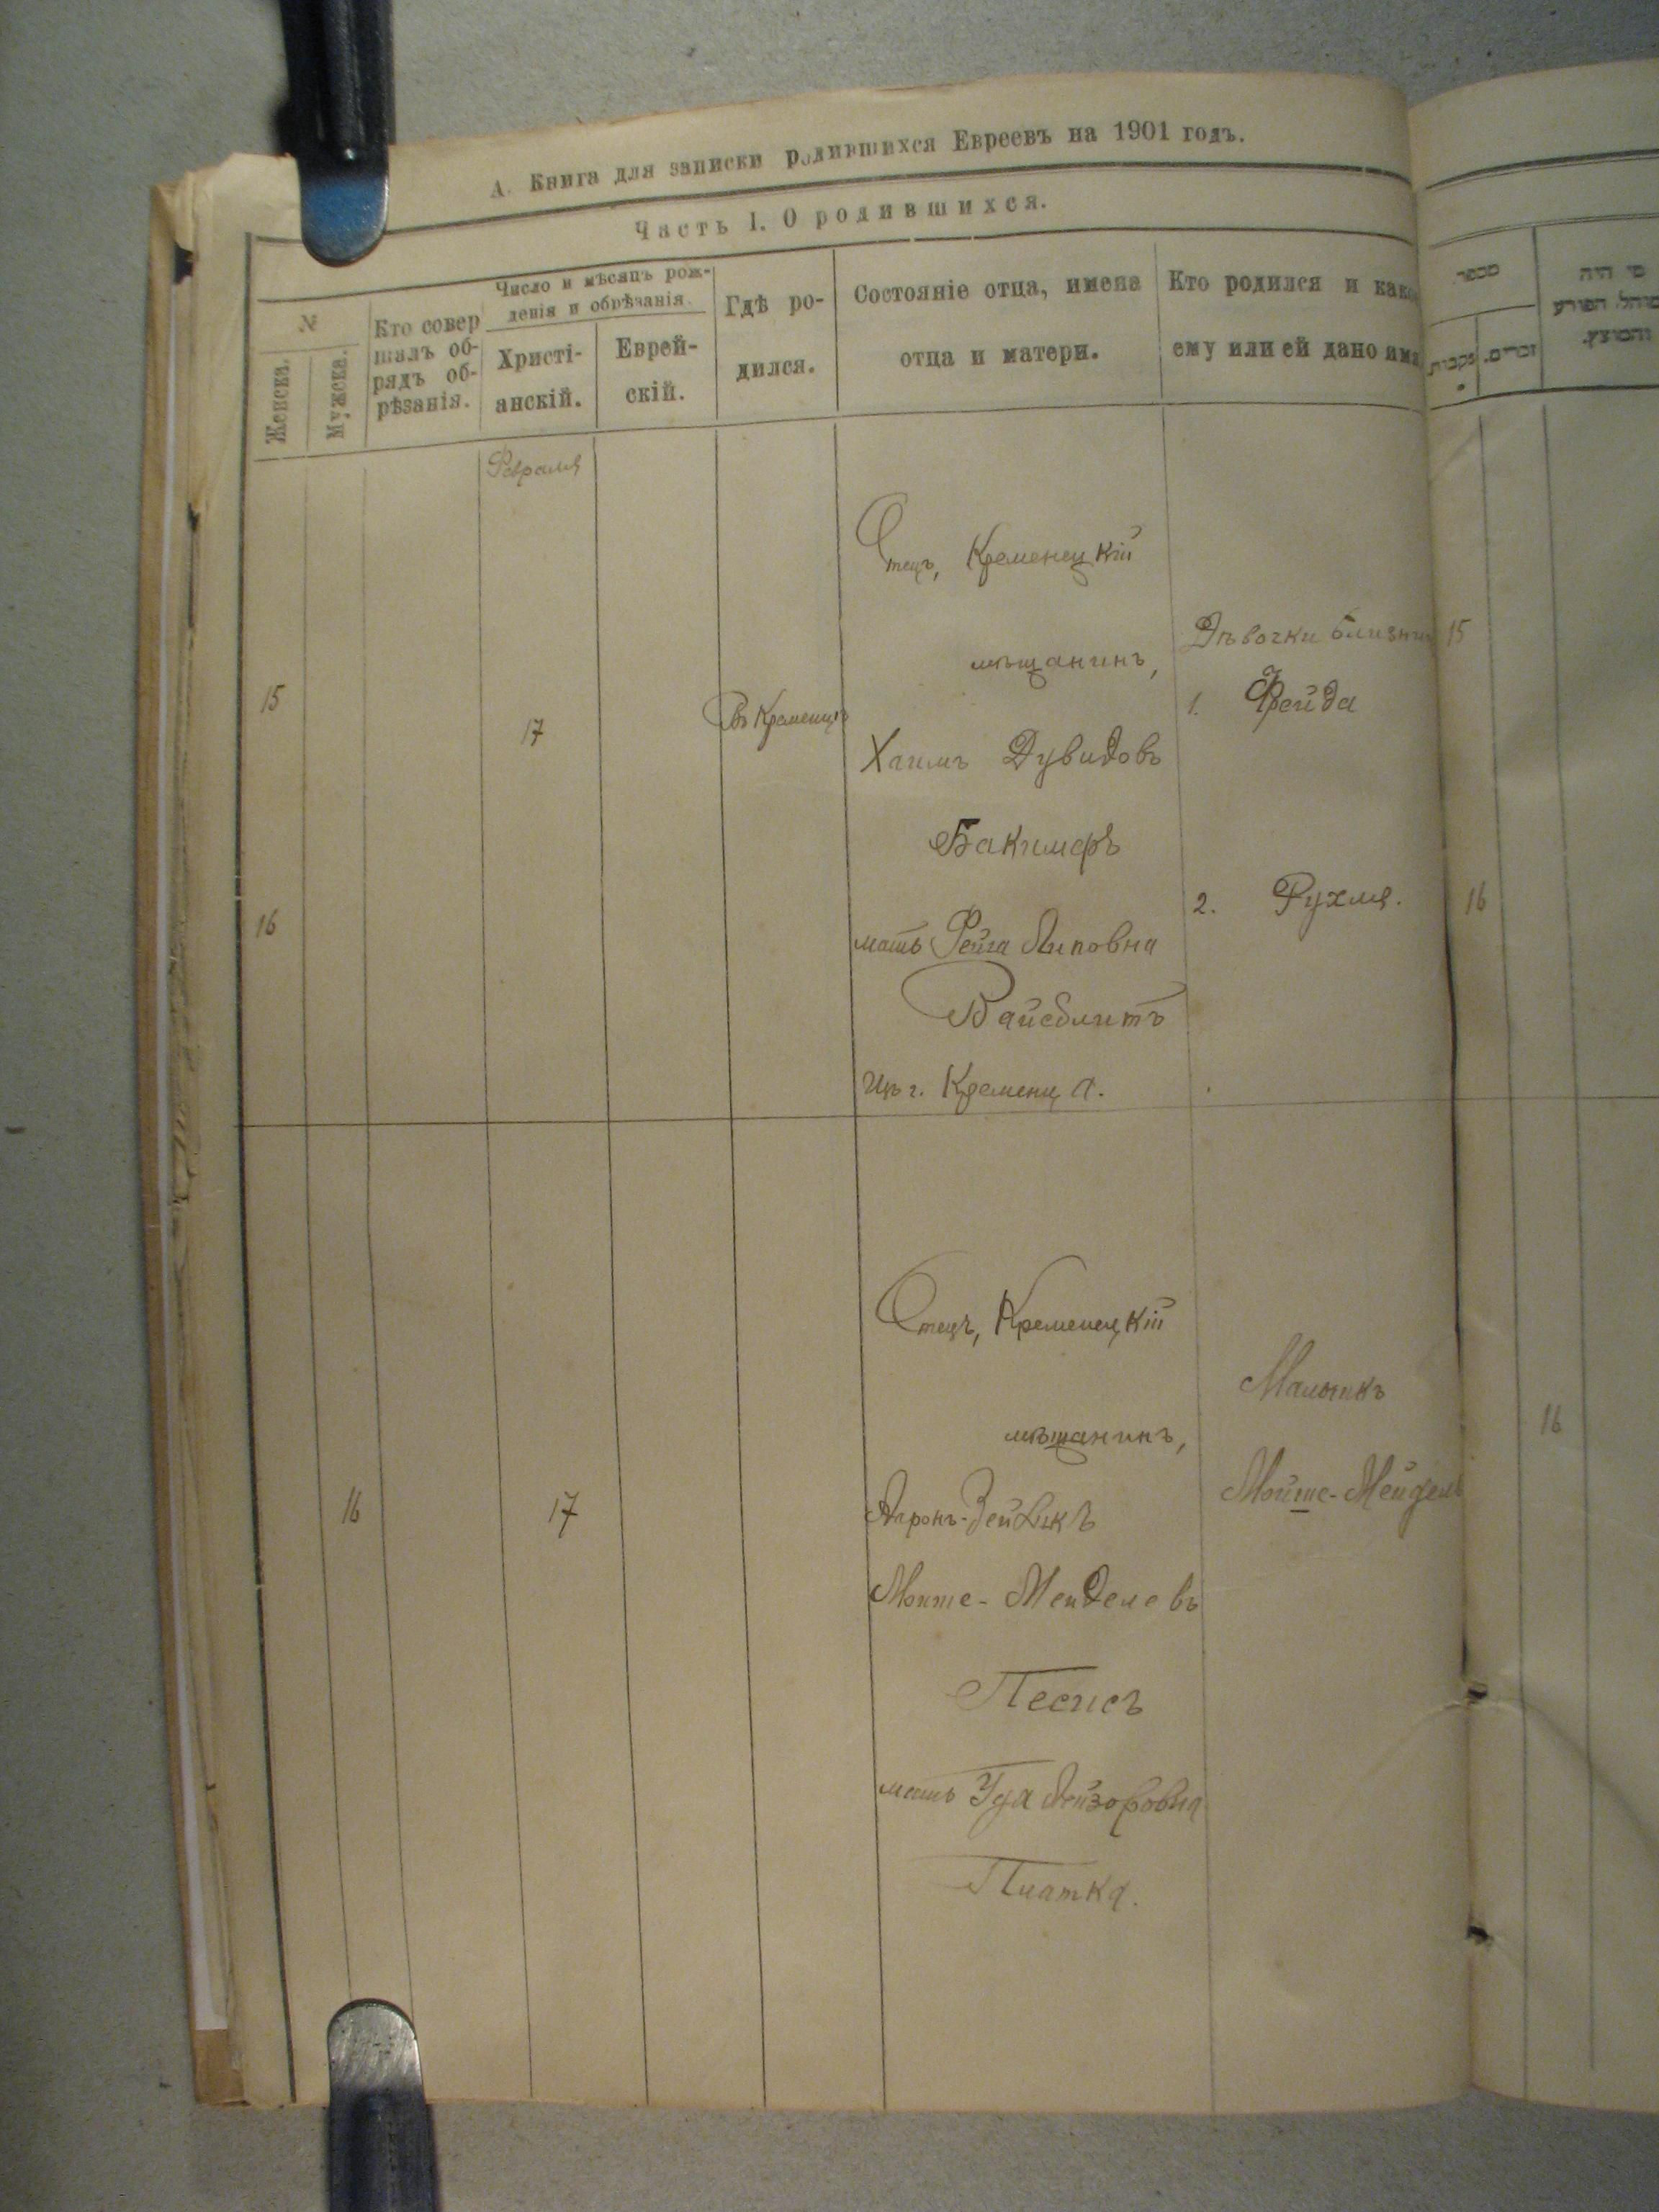 А. Книга для записки родившихся Евреевъ на 1901 годъ.
Часть I. О родившихся.
№
Женска.
Мужска.
Кто совер
шалъ об-
рядъ об-
рѣзанія.
Число и мѣсяцъ рож-
денія и обрѣзанія.
Христі-
анскій.
Еврей-
скій.
Гдѣ ро-
дился.
Состояніе отца, имена
отца и матери.
Кто родился и како
ему или ей дано имя
מספר
נקבות.
זכרים.
מי היה
המוהל, הפורע
והמוצץ.
Февраля
15
17
Въ Кременцѣ
Отецъ, Кременецкій
мѣщанинъ,
Хаимъ Дувидовъ
Бакимеръ
мать Фейга Липовна
Вайсблитъ
Изъ г. Кременца.
Дѣвочки близн
1. Фрейда
15
16
2. Рухля.
16
16
17
Отецъ, Кременецкій
мѣщанинъ,
Аронъ-Зейликъ
Мойше-Менделевъ
Песисъ
мать Гдя Лейзоровна
Платка.
Мальчикъ
Мойше-Мендель
16